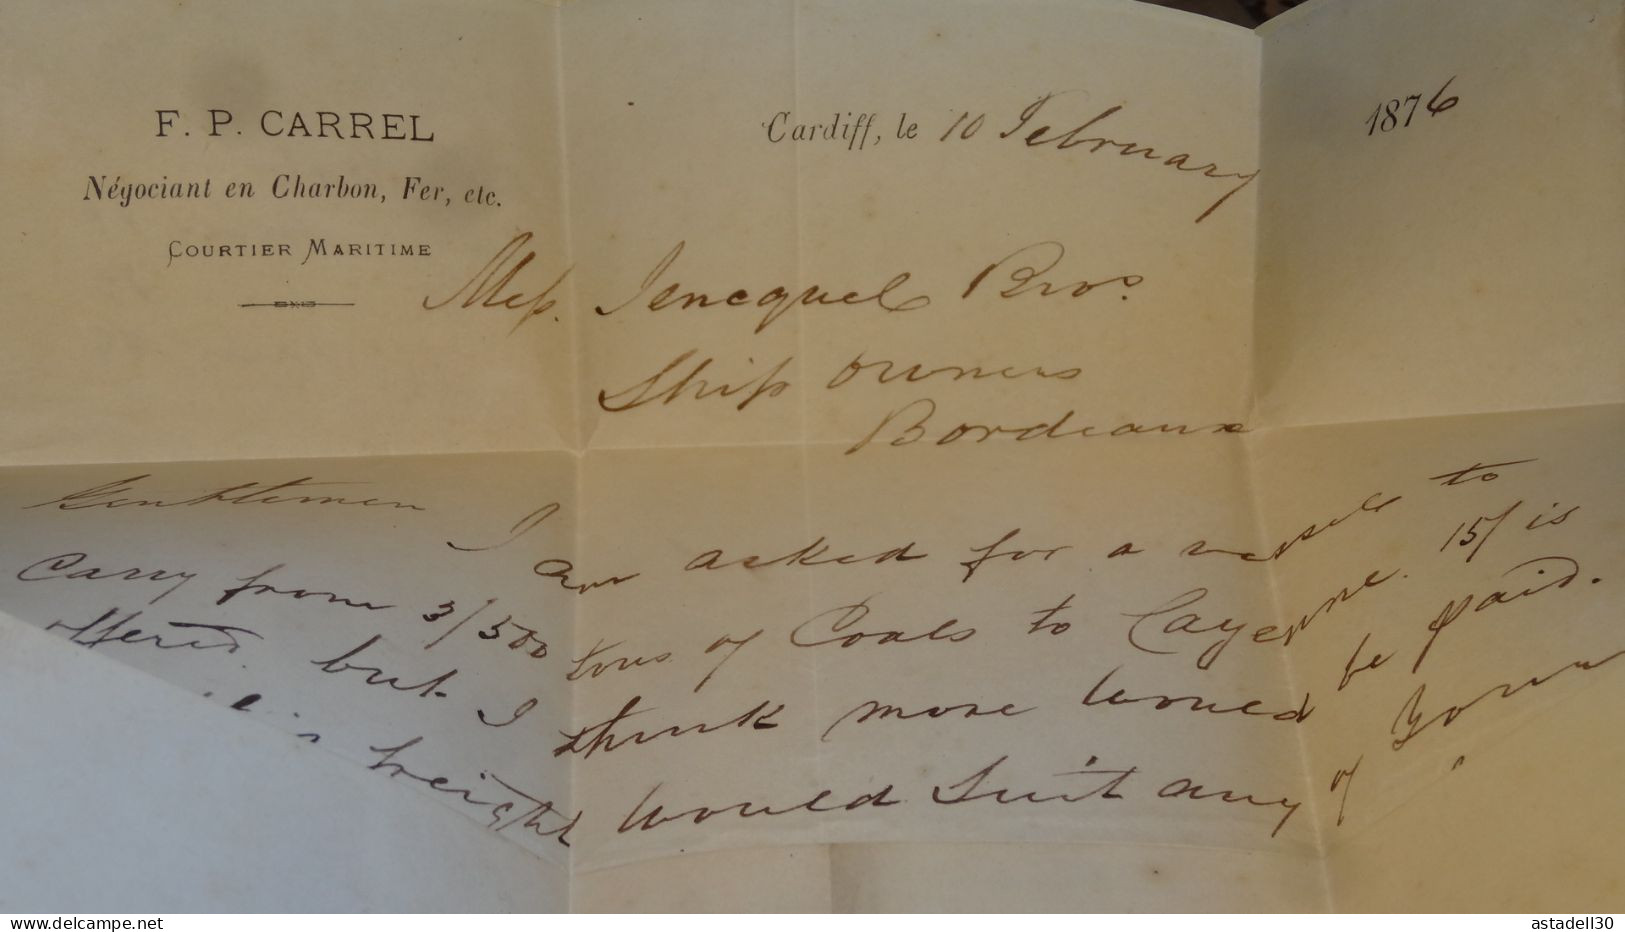 F. P. CARREL
Négociant en Charbon, Fer, etc.
COURTIER MARITIME
Cardiff, le 10 February 1876
Mess. Jencquel Bros.
Ship owners
Bordeaux
Gentlemen I am asked for a vessel to
carry from 3/500 tons of Coals to Cayenne. 15/ is
offered but I think more would be paid.
freight would suit any of your
www.delcampe.net
astadell30